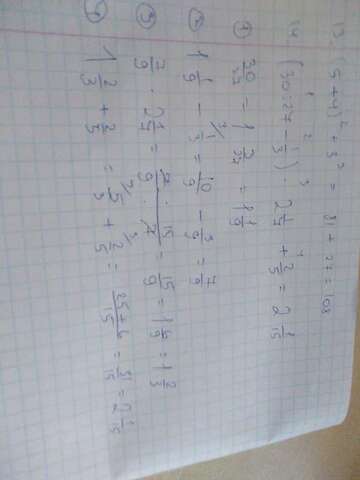 13. (5+4)² + 3³ = 81 + 27 = 108
14. (30:27 - 1/3) · 2 1/7 + 2/5 = 2 1/15
① 30/27 = 1 3/27 = 1 1/9
② 1 1/9 - 1/3 = 10/9 - 3/9 = 7/9
③ 7/9 · 2 1/7 = 7/9 · 15/7 = 15/9 = 1 6/9 = 1 2/3
④ 1 2/3 + 2/5 = 5/3 + 2/5 = 25+6/15 = 31/15 = 2 1/15